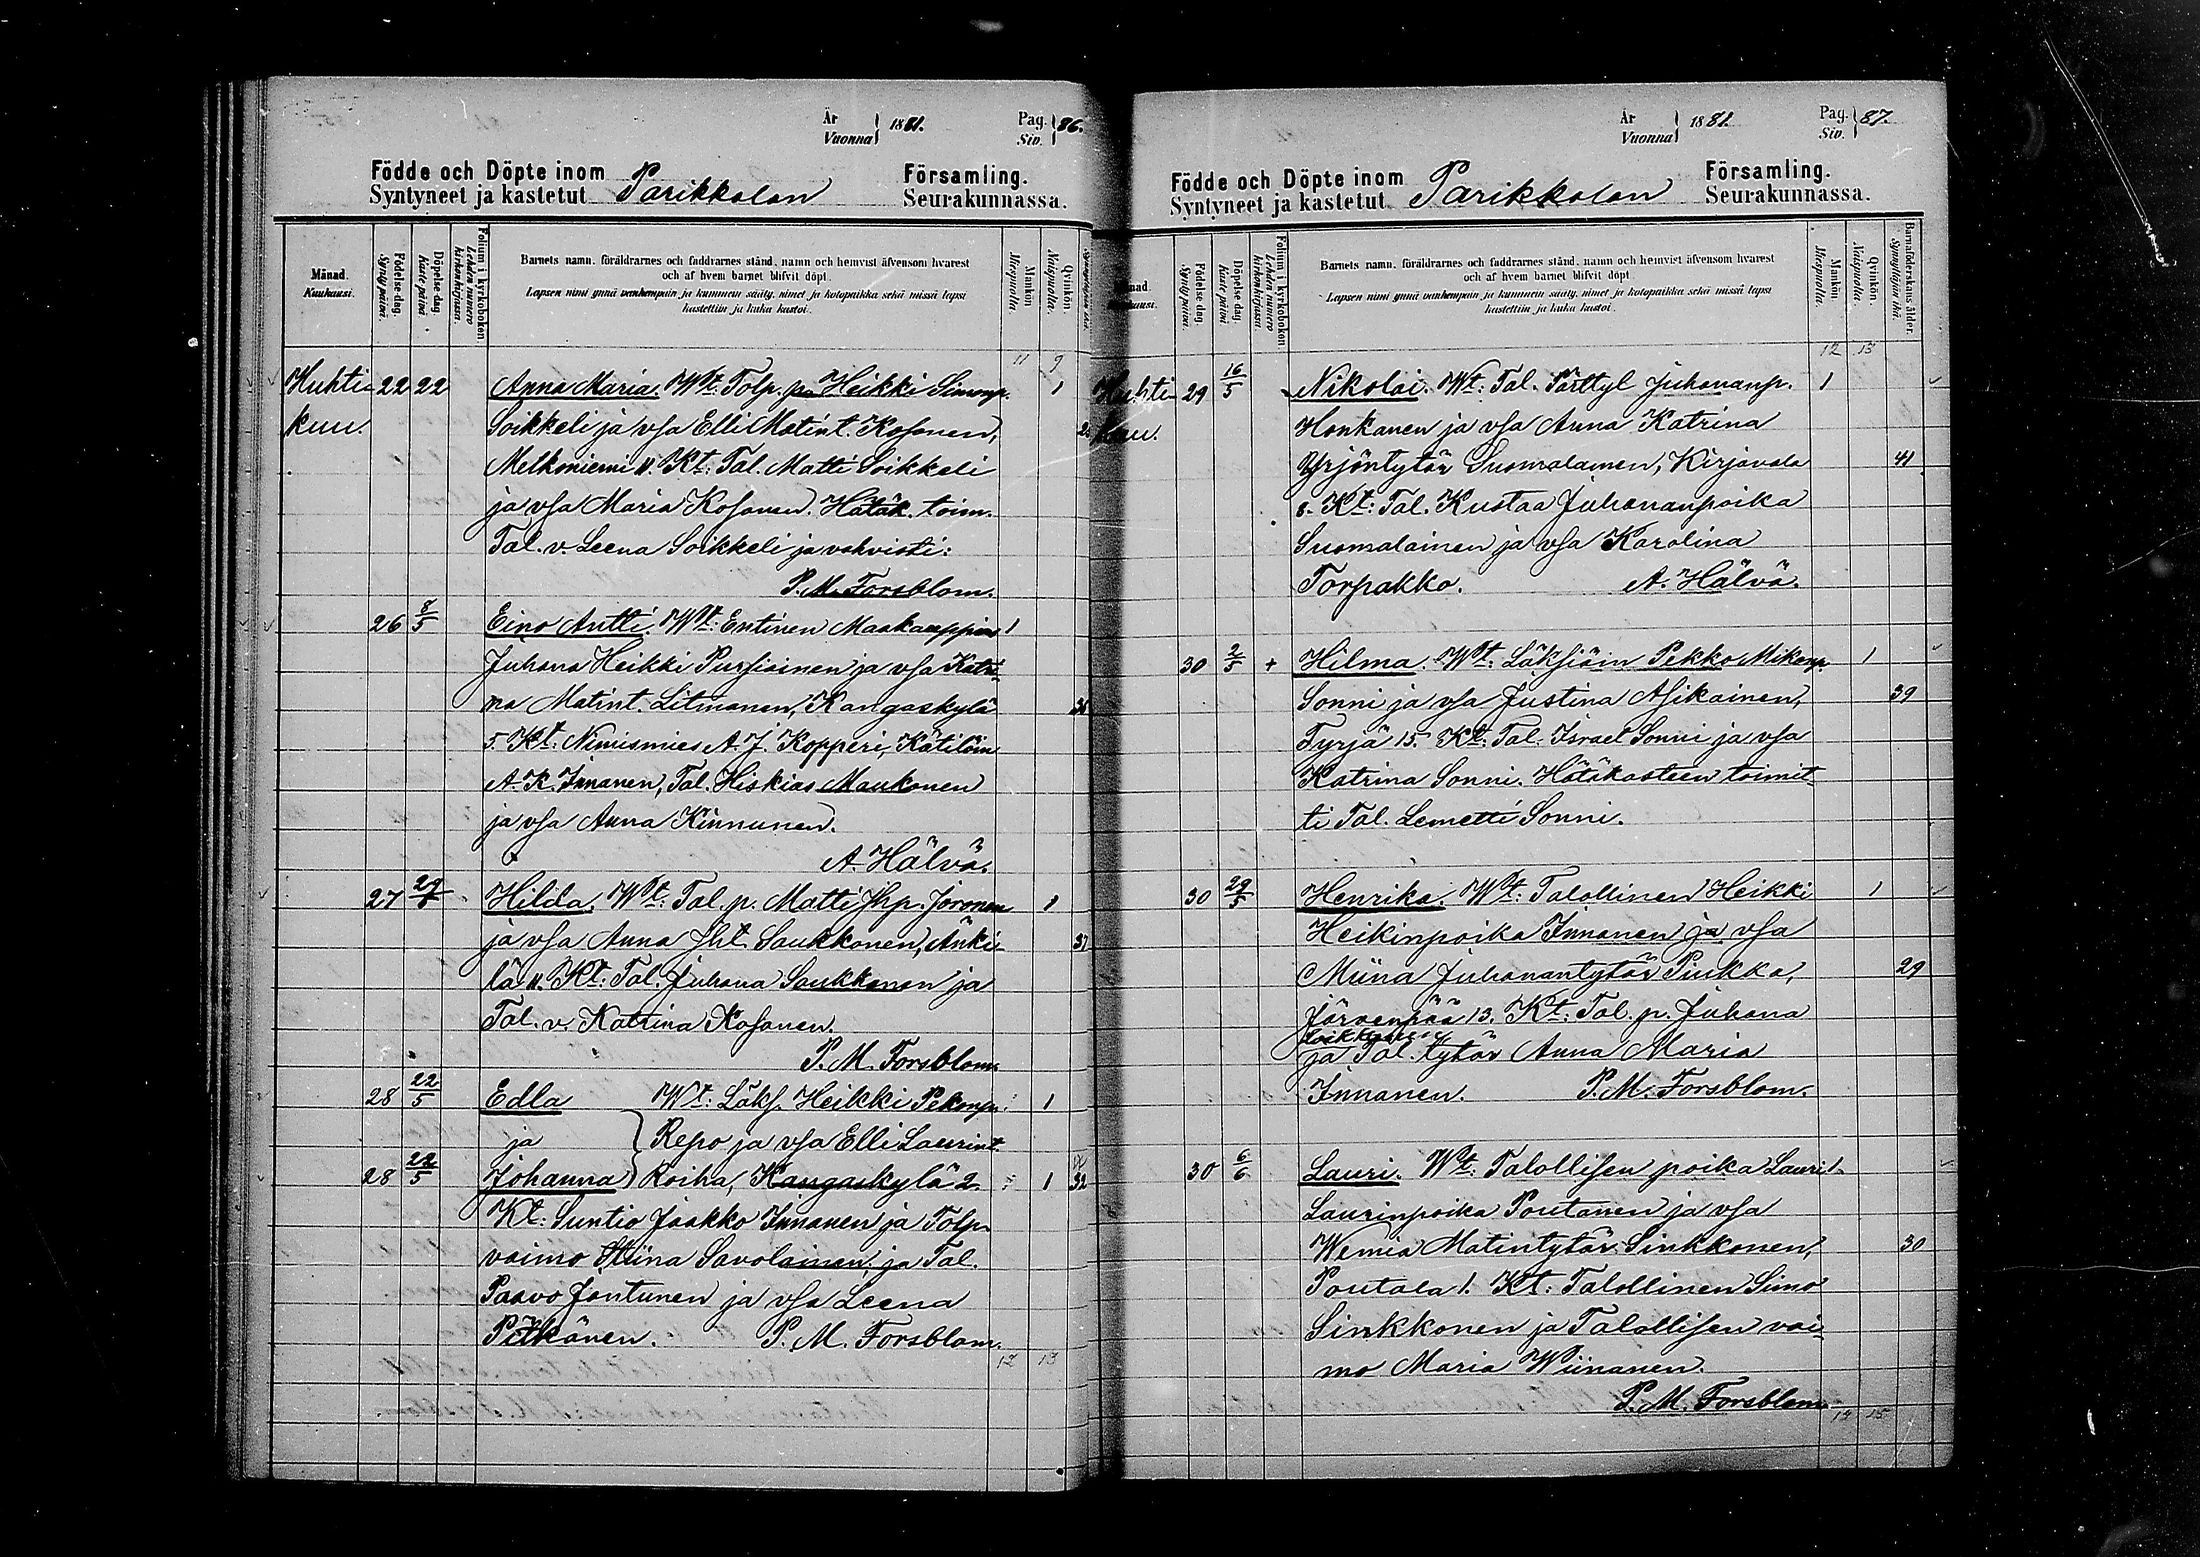 År
Vuonna } 1881.
Pag.
Siv. } 86.
Födde och Döpte inom
Syntyneet ja kastetut Parikkalan
Församling.
Seurakunnassa.
Månad.
Kuukausi.
Födelse-dag.
Synty päivä.
Döpelse-dag.
Kaste päivä
Folium i kyrkoboken
Lehden numero kirkonkirjassa.
Barnets namn, föräldrarnes och faddrarnes stånd, namn och hemvist äfvensom hvarest
och af hvem barnet blifvit döpt.
Lapsen nimi ynnä vanhempain ja kummein sääty, nimet ja kotopaikka sekä missä lapsi
kastettiin ja kuka kastoi.
Mankön
Miespuolia.
Qvinkön.
Naispuolia.
11 9
Huhti- 22 22 Anna Maria. Wt: Tolp. p. Heikki Simonp. 1
kuu. Soikkeli ja vsa Elli Matint. Kosonen,
Melkoniemi 11. Kt: Tal. Matti Soikkeli
ja vsa Maria Kosonen. Hätäk. toim.
Tal. v. Leena Soikkeli ja vahvisti:
P. M. Forsblom.
26 8/5 Eino Antti. Wt: Entinen Maakauppias 1
Juhana Heikki Pursiainen ja vsa Katri-
na Matint. Litmanen, Kangaskylä
5. Kt: Nimismies A. J. Kopperi, Kätilöin
A. K. Innanen, Tal. Hiskias Maukonen
ja vsa Anna Kinnunen.
A. Hälvä.
27 Hilda. Wt: Tal. p. Matti Jhp. Joronen 1
ja vsa Anna Jht. Saukkonen, Änki-
lä 11. Kt: Tal. Juhana Saukkonen ja
Tal. v. Katrina Kosonen.
P. M. Forsblom.
28 22/5 Edla Wt: Läks. Heikki Pekonp. 1
ja } Repo ja vsa Elli Laurint.
28 22/5 Johanna Roiha, Kangaskylä 2. 1 32
Kt: Suntio Jaakko Innanen ja Tolp.
vaimo Stiina Savolainen, ja Tal.
Paavo Jantunen ja vsa Leena
Pitkänen. P. M. Forsblom.
12 13
År
Vuonna } 1881.
Pag.
Siv. } 87.
Födde och Döpte inom
Syntyneet ja kastetut Parikkalan
Församling.
Seurakunnassa.
Födelse-dag.
Synty päivä.
Döpelse-dag.
Kaste päivä
Folium i kyrkoboken
Lehden numero kirkonkirjassa.
Barnets namn, föräldrarnes och faddrarnes stånd, namn och hemvist äfvensom hvarest
och af hvem barnet blifvit döpt.
Lapsen nimi ynnä vanhempain ja kummein sääty, nimet ja kotopaikka sekä missä lapsi
kastettiin ja kuka kastoi.
Mankön
Miespuolia.
Qvinkön.
Naispuolia.
Barnaföderskans ålder.
Synnyttäjän ikä.
12 13
Huhti- 29 16/5 Nikolai. Wt: Tal. Pärttyl Juhananp. 1
kuu. Honkanen ja vsa Anna Katrina
Yrjöntytär Suomalainen, Kirjavala 41
8. Kt: Tal. Kustaa Juhananpoika
Suomalainen ja vsa Karolina
Torpakko. A. Hälvä.
30 2/5 + Hilma. Wt: Läksiäin Pekko Mikonp. 1
Sonni ja vsa Justina Asikainen, 39
Tyrjä 15. Kt: Tal. Israel Sonni ja vsa
Katrina Sonni. Hätäkasteen toimit-
ti Tal. Lemetti Sonni.
30 29/5 Henrika. Wt: Talollinen Heikki 1
Heikinpoika Innanen ja vsa
Miina Juhanantytär Piukka, 29
Järvenpää 13. Kt: Tal. p. Juhana
ja Tal. tytär Anna Maria
Innanen. P. M. Forsblom.
30 6/6 Lauri. Wt: Talollisen poika Lauri 1
Laurinpoika Poutanen ja vsa
Wemia Matintytär Sinkkonen, 30
Poutala 1. Kt: Talollinen Simo
Sinkkonen ja Talollisen vai-
mo Maria Wiinanen.
P. M. Forsblom.
14 15